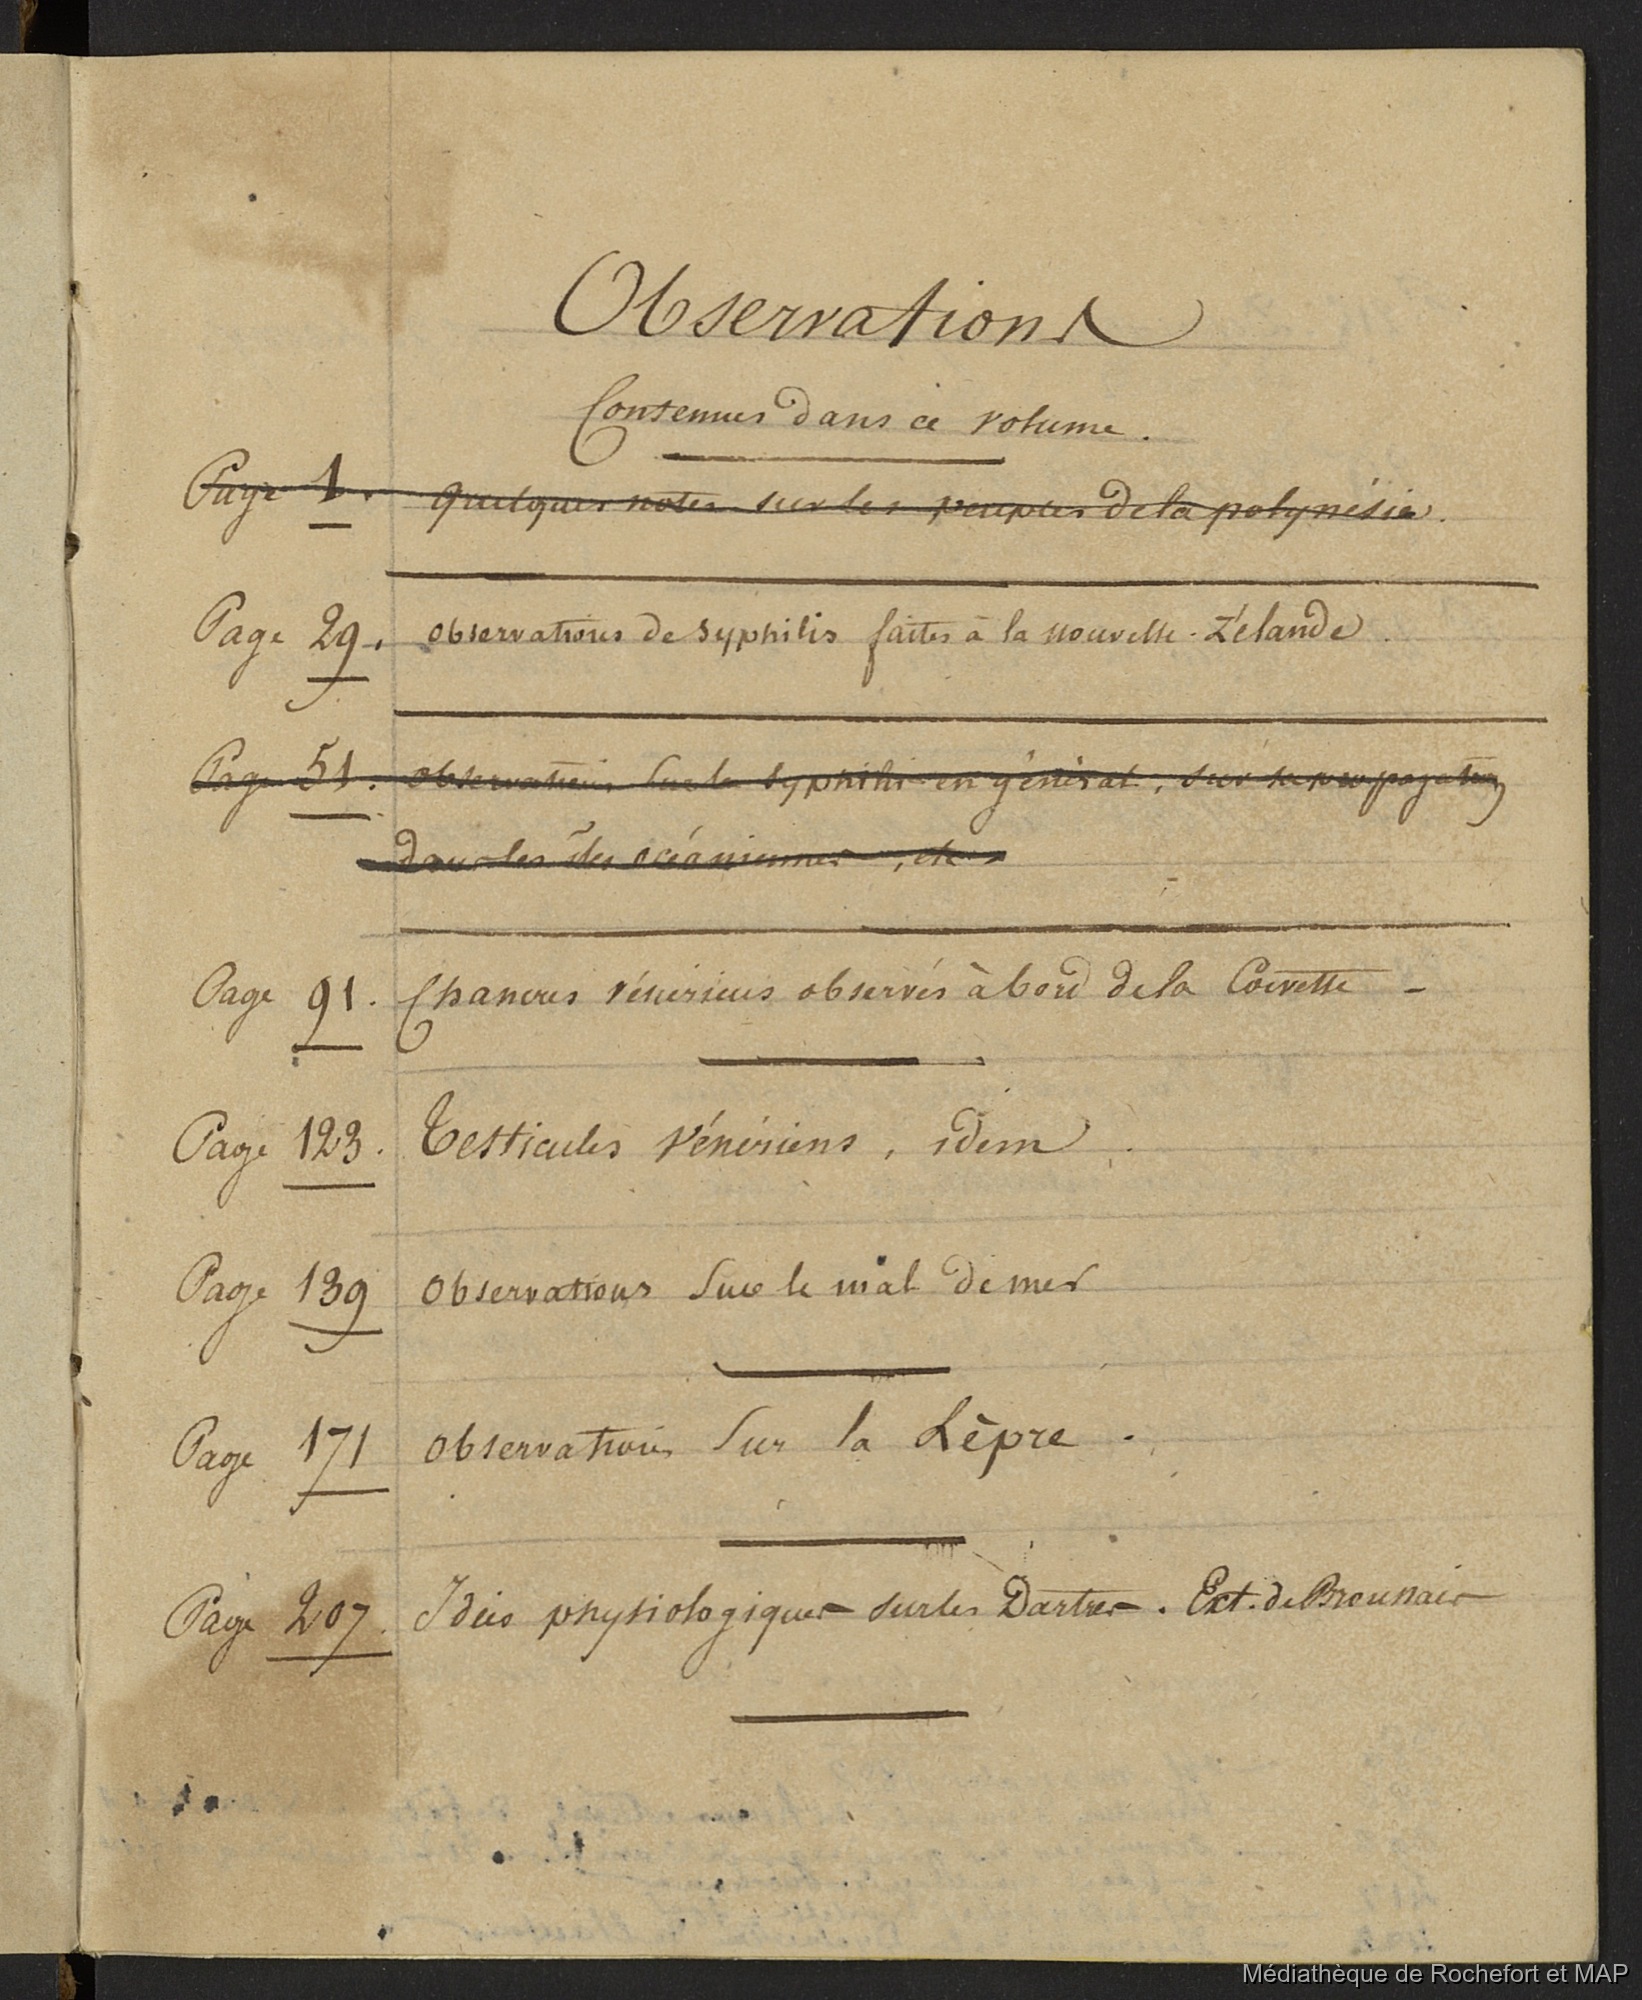 Observations
Contenues dans ce volume.
Page 1. Quelques notes sur les peuples de la polynésie.
Page 29. observations de syphilis faites à la nouvelle-Zélande.
Page 51. observations sur la syphilis en général, sur sa propagation
dans les îles océaniennes, etc.
Page 91. Chancres vénériens observés à bord de la Corvette -
Page 123. Testicules vénériens, idem.
Page 139 observations sur le mal de mer
Page 171 observations sur la Lèpre.
Page 207. Idées physiologiques sur les Dartres. Ext. de
Médiathèque de Rochefort et MAP